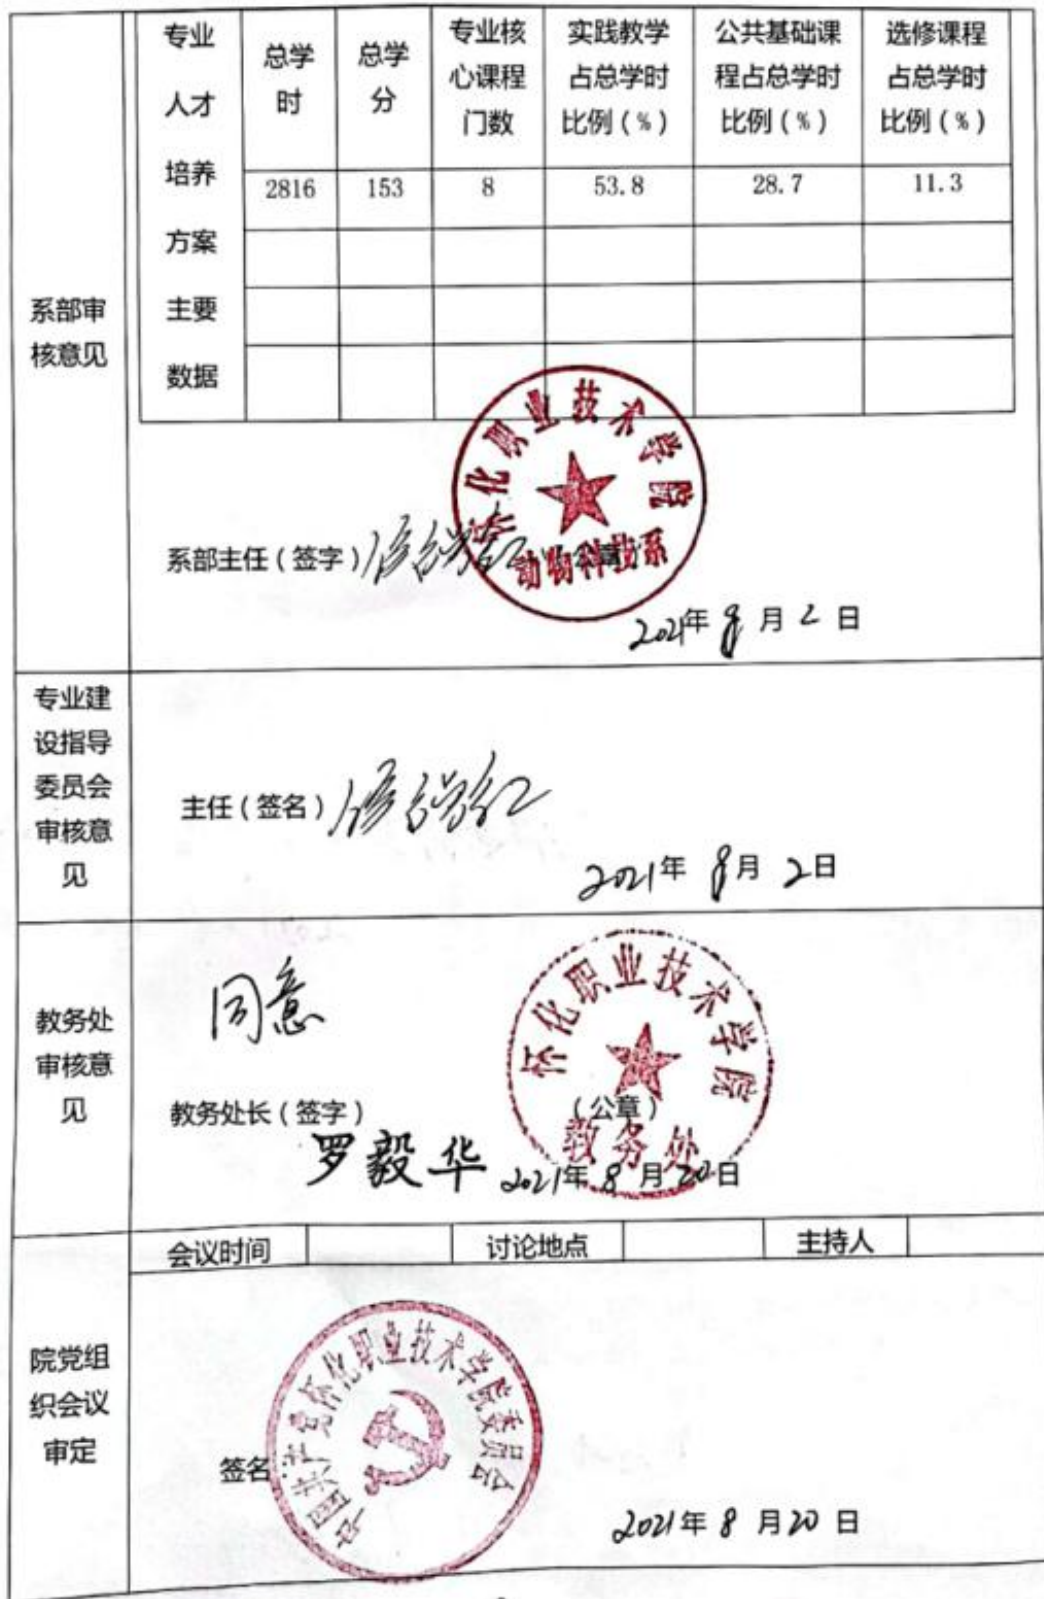 系部审
核意见
专业
人才
培养
方案
主要
数据
总学
时
总学
分
专业核
心课程
门数
实践教学
占总学时
比例(%)
公共基础课
程占总学时
比例(%)
选修课程
占总学时
比例(%)
2816 153 8 53.8 28.7 11.3
怀化职业技术学院
动物科技系
系部主任(签字)
2021年 8 月 2 日
专业建
设指导
委员会
审核意
见
主任(签名)
2021年 8月 2日
教务处
审核意
见
同意
怀化职业技术学院
教务处
教务处长(签字) (公章)
罗毅华 2021年 8 月 20日
会议时间 讨论地点 主持人
院党组
织会议
审定
中国共产党怀化职业技术学院委员会
签名
2021年 8 月20 日